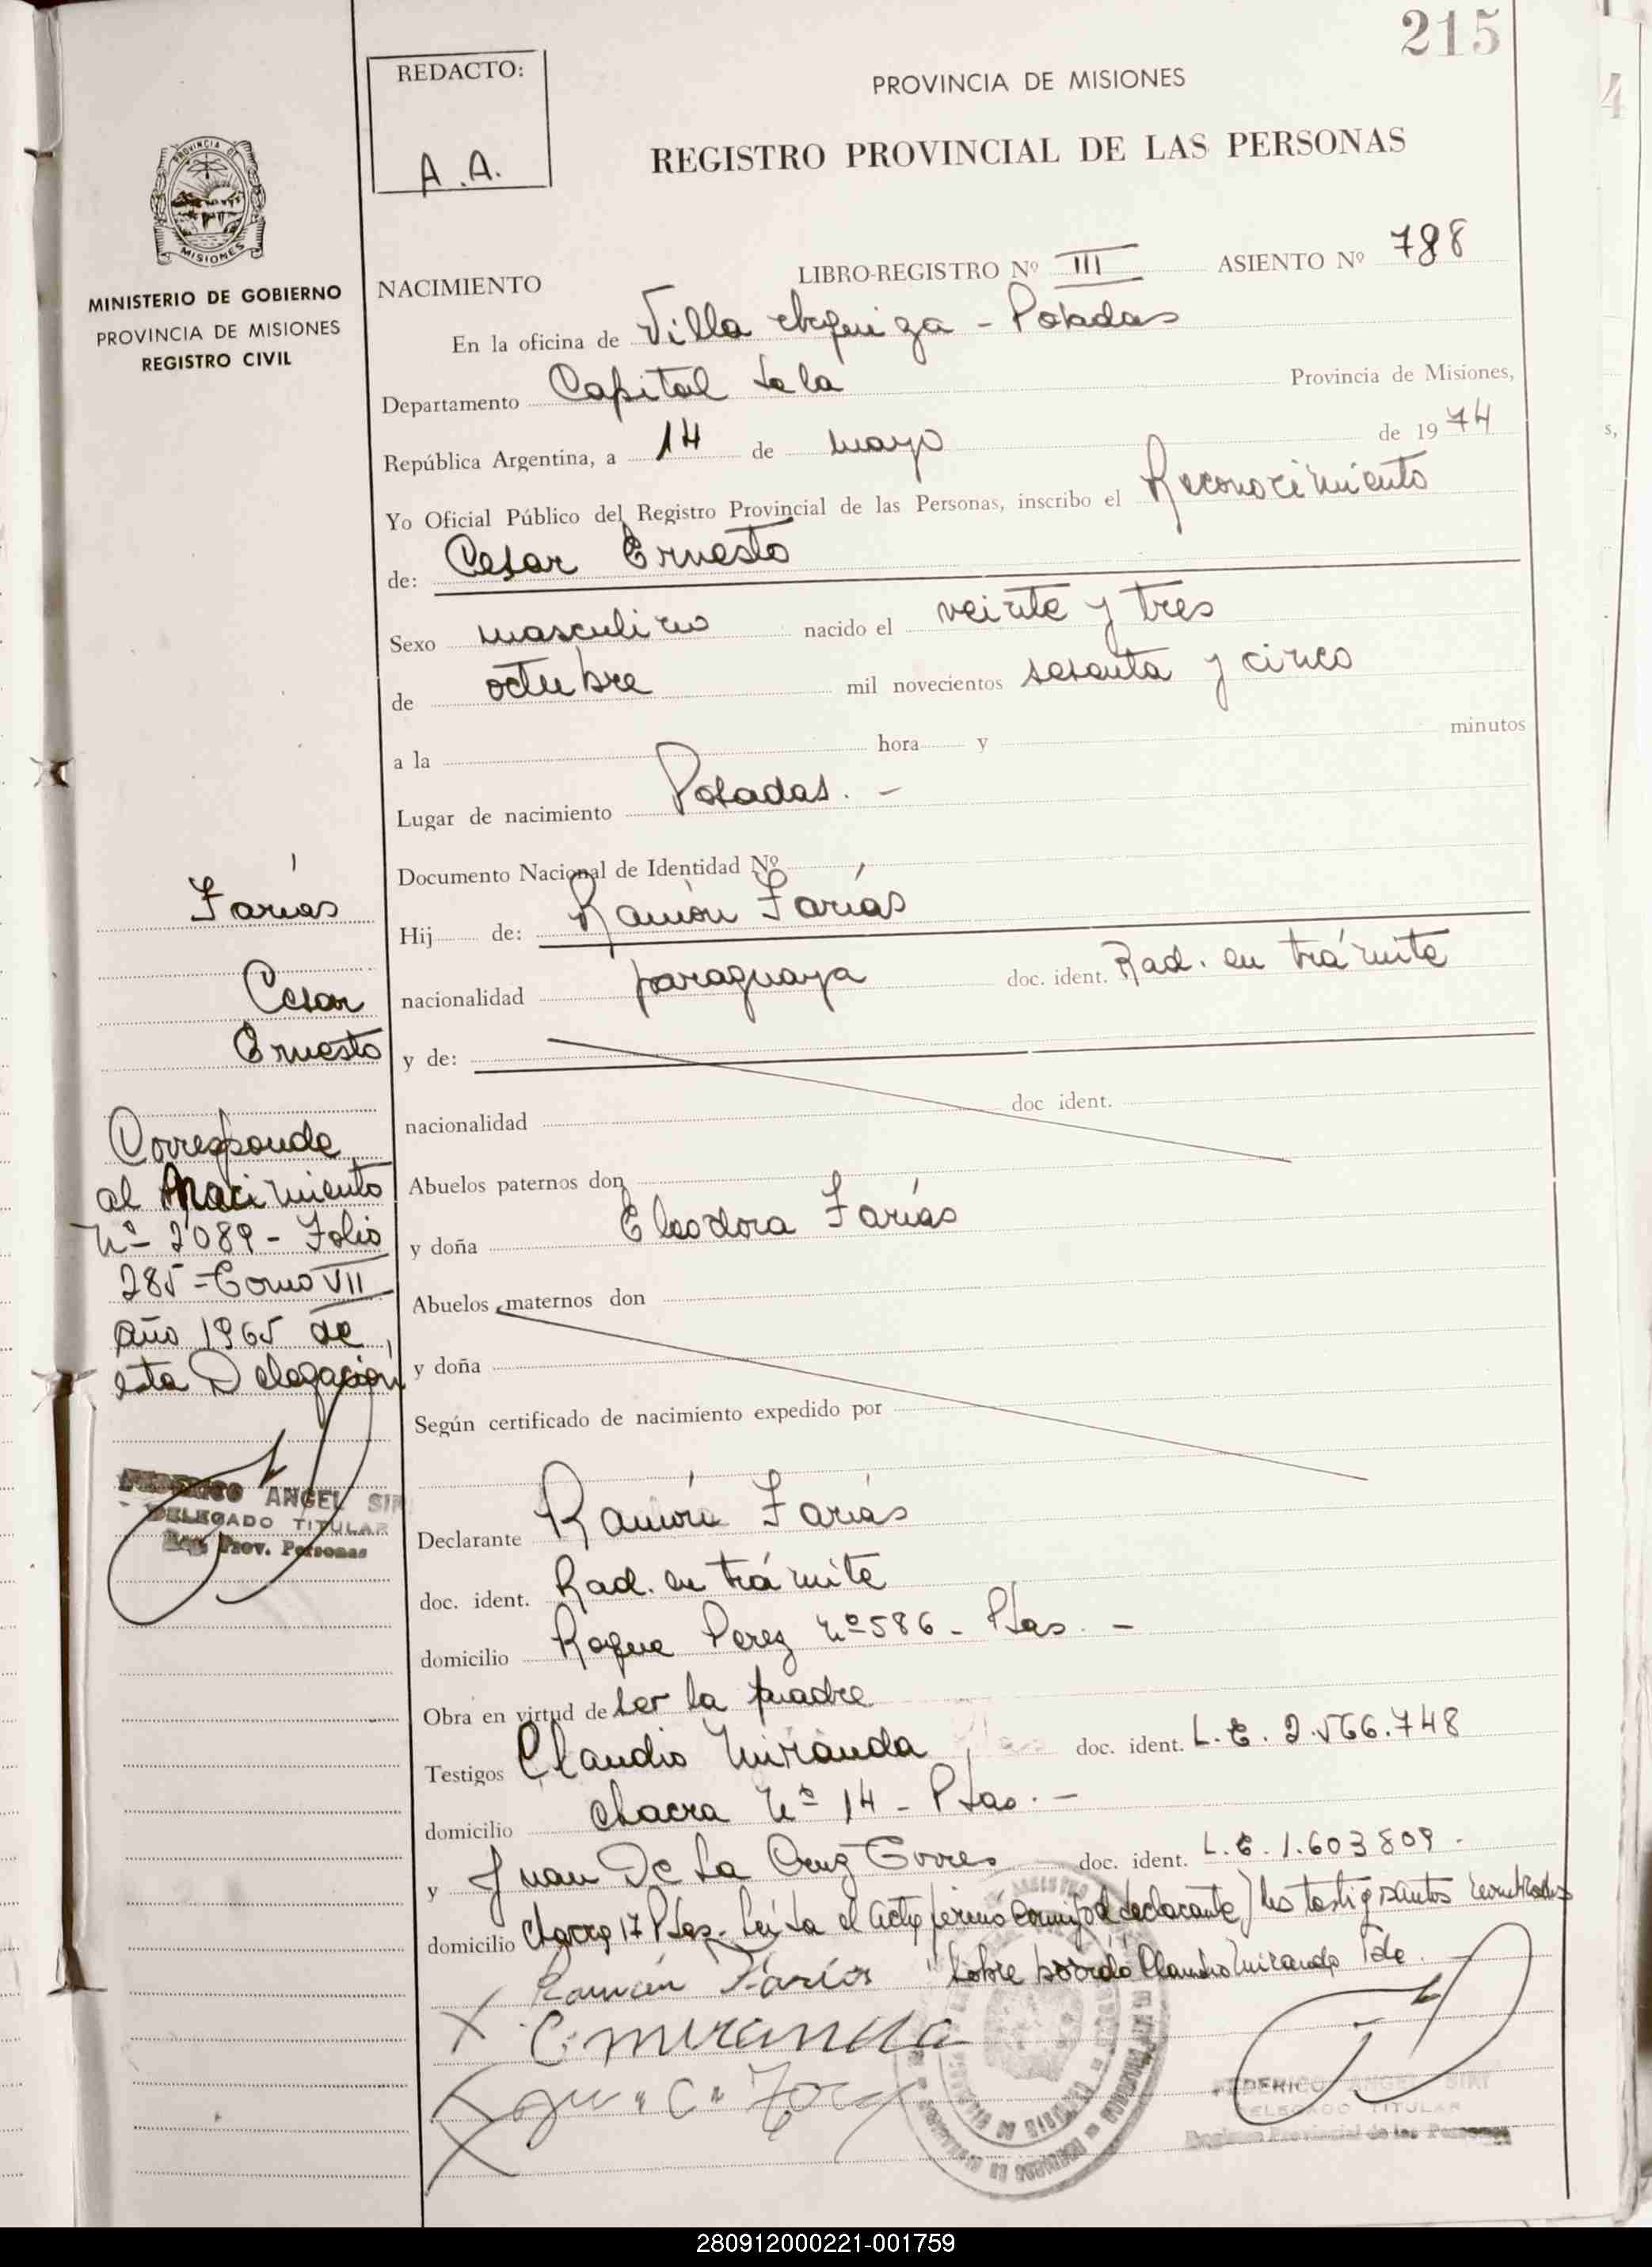 215
REDACTO:
A.A.
PROVINCIA DE MISIONES
REGISTRO PROVINCIAL DE LAS PERSONAS
PROVINCIA DE
MISIONES
MINISTERIO DE GOBIERNO
PROVINCIA DE MISIONES
REGISTRO CIVIL
NACIMIENTO LIBRO-REGISTRO Nº III ASIENTO Nº 788
En la oficina de Villa Urquiza - Posadas
Departamento Capital de la Provincia de Misiones,
República Argentina, a 14 de mayo de 1974
Yo Oficial Público del Registro Provincial de las Personas, inscribo el Reconocimiento
de: Cesar Ernesto
Sexo masculino nacido el veinte y tres
de octubre mil novecientos sesenta y cinco
a la hora y minutos
Lugar de nacimiento Posadas. -
Documento Nacional de Identidad Nº
Hij de: Ramón Farías
nacionalidad paraguaya doc. ident. Rad. en trámite
y de:
nacionalidad doc ident.
Abuelos paternos don
y doña Eleodora Farías
Abuelos maternos don
y doña
Según certificado de nacimiento expedido por
Declarante Ramón Farías
doc. ident. Rad. en trámite
domicilio Roque Perez nº 586 - Pdas. -
Obra en virtud de ser la padre
Testigos Claudio Miranda doc. ident. L.E. 2.566.748
domicilio chacra nº 14 - Pdas. -
y Juan De La Cruz Torres doc. ident. L.E. 1.603.809 -
domicilio chacra 17 Pdas. Leída el acta firmó conmigo el declarante y los testigos
Ramón Farías "Sobre borrado Claudio Miranda Vale.
X C. miranda
Farías
Cesar
Ernesto
Corresponde
al Nacimiento
nº 2089 - Folio
285 - Tomo VII
año 1965 de
esta Delegación
ANGEL SIRI
DELEGADO TITULAR
Reg. Prov. Personas
FEDERICO ANGEL SIRI
DELEGADO TITULAR
Registro Provincial de las Personas
280912000221-001759